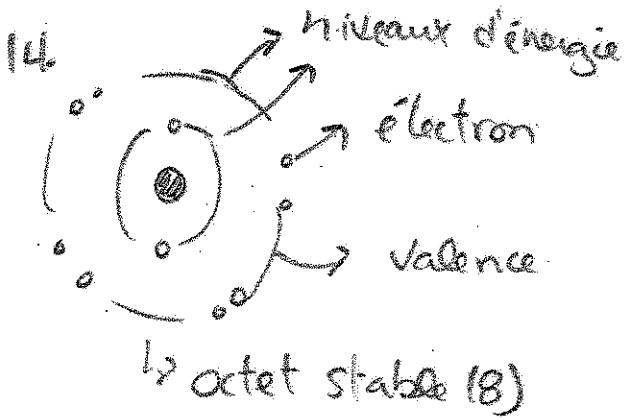 14.
niveaux d'énergie
électron
valence
↳ octet stable (8)